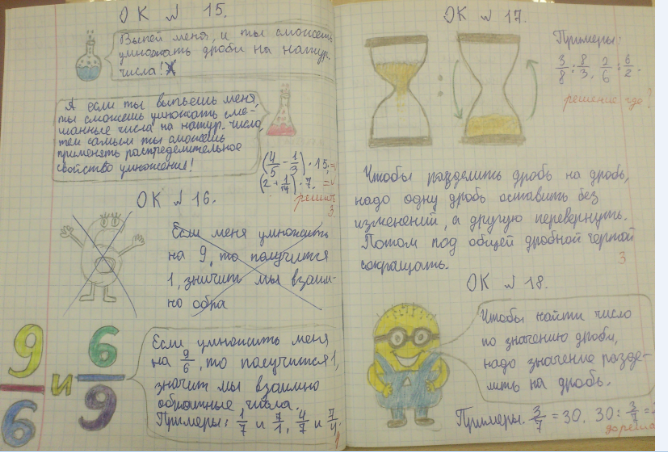 ОК № 15.
Выпей меня, и ты сможешь
умножать дроби на натур.
числа!
А если ты выпьешь меня,
ты сможешь умножать сме-
шанные числа на натур. число,
тем самым ты сможешь
применять распределительное
свойство умножения!
(4/5 - 1/3) · 15
(2 + 1/14) · 7.
ОК № 16.
Если меня умножить
на 9, то получится
1, значит мы взаим-
но обра
9/6 и 6/9
Если умножить меня
на 9/6, то получится 1,
значит мы взаимно
обратные числа.
Примеры: 1/7 и 7/1, 4/7 и 7/4
ОК № 17.
Примеры:
3/8 : 8/3, 2/6 : 6/2.
решение где?
Чтобы разделить дробь на дробь,
надо одну дробь оставить без
изменений, а другую перевернуть.
Потом под общей дробной чертой
сокращать.
3
ОК № 18.
Чтобы найти число
по значению дроби,
надо значение разде-
лить на дробь.
Примеры. 3/7 = 30. 30 : 3/7 =